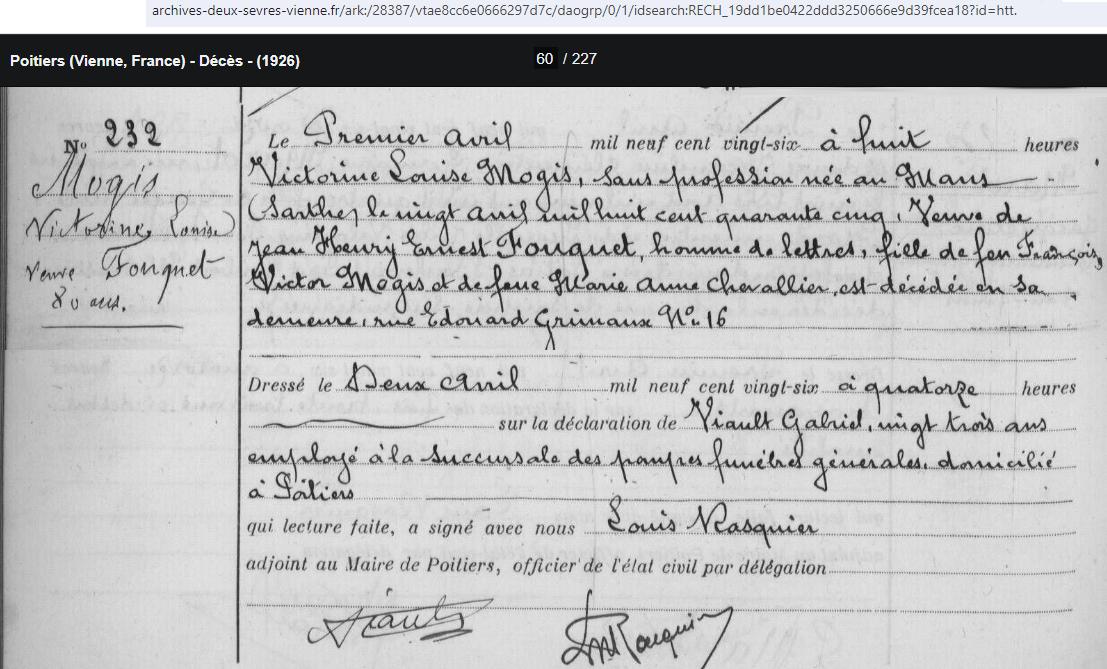 archives-deux-sevres-vienne.fr/ark:/28387/vtae8cc6e0666297d7c/daogrp/0/1/idsearch:RECH_19dd1be0422ddd3250666e9d39fcea18?id=htt.
Poitiers (Vienne, France) - Décès - (1926)
60 / 227
N° 232
Mogis
Victorine, Louise
veuve Fouquet
80 ans.
Le Premier avril mil neuf cent vingt-six à huit heures
Victorine Louise Mogis, sans profession née au Mans
(Sarthe) le vingt avril mil huit cent quarante cinq, Veuve de
Jean Henry Ernest Fouquet, homme de lettres, fille de feu François,
Victor Mogis et de feue Marie Anne Chevallier, est décédée en sa
demeure, rue Edouard Grimaux N° 16
Dressé le Deux avril mil neuf cent vingt-six à quatorze heures
sur la déclaration de Viault Gabriel, vingt trois ans
employé à la succursale des pompes funèbres générales, domicilié
à Poitiers
qui lecture faite, a signé avec nous Louis Rasquier
adjoint au Maire de Poitiers, officier de l'état civil par délégation